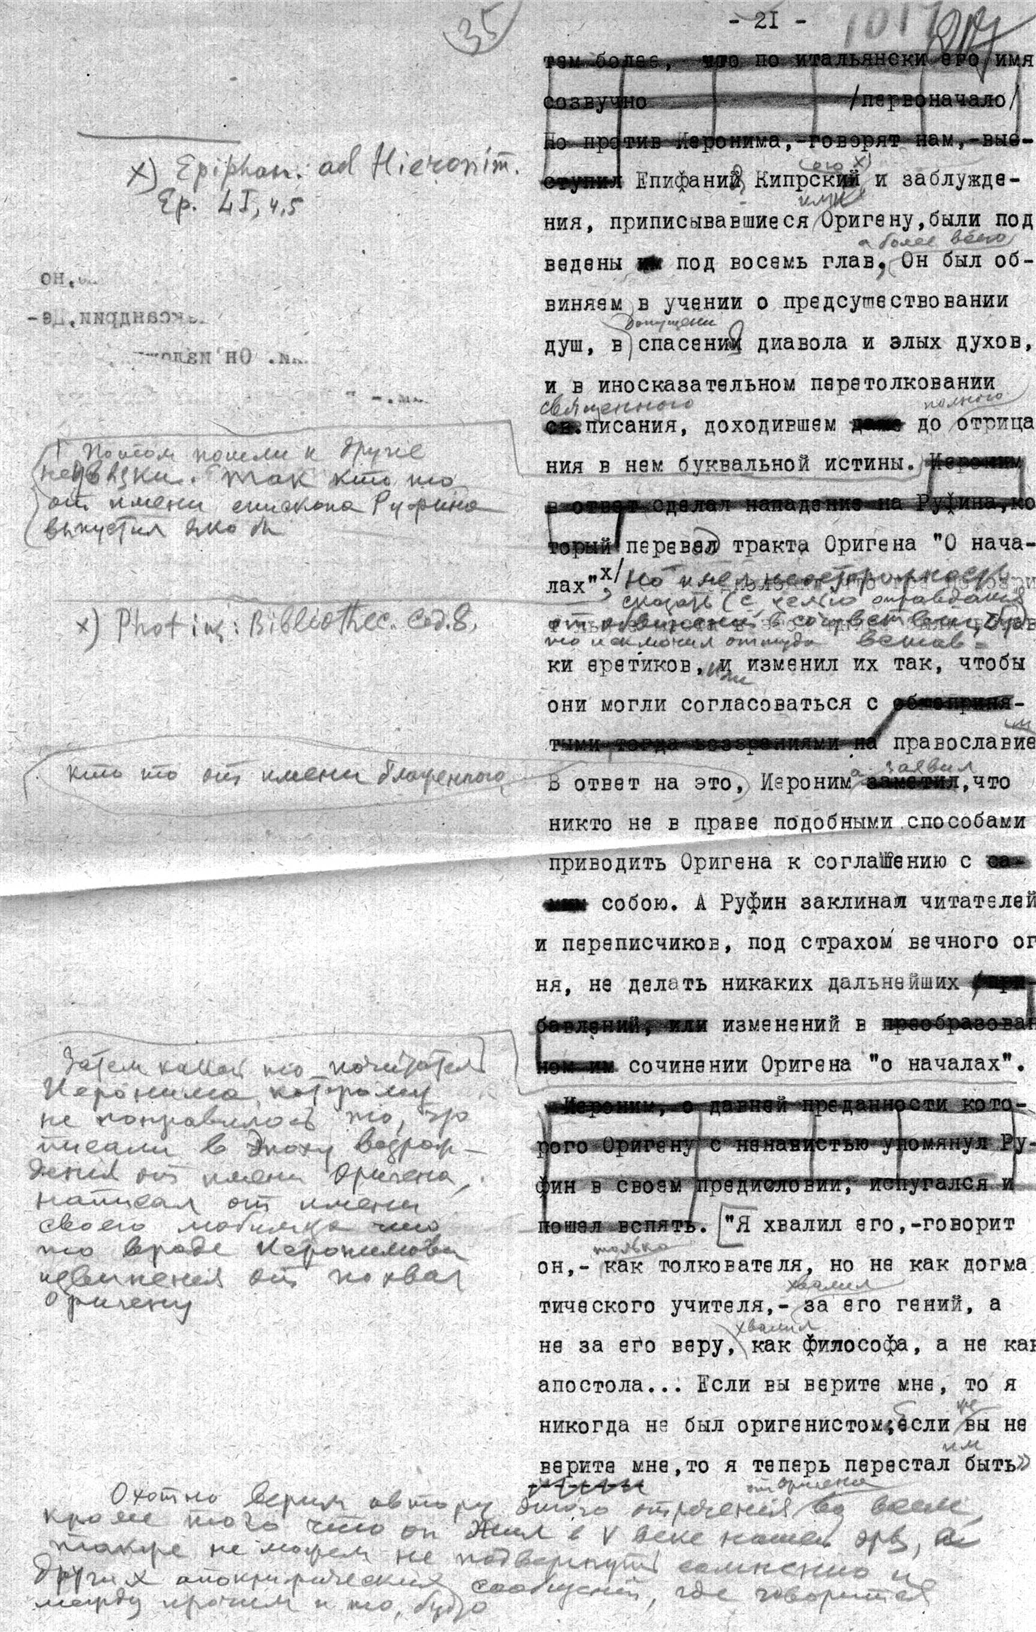 35
- 2I -
1017
217
тем более, что по итальянски его имя
созвучно /первоначало/
Но против Иеронима,-говорят нам,-выс-
ступил Епифаний Кипрский и заблужде-
ею x)
x) Epiphan: ad Hieronim.
Ep. LI, 4,5
ния, приписывавшиеся Оригену,были под
ими
а более всего
ведены под восемь глав, Он был об-
виняем в учении о предсуществовании
допущении
душ, в спасении диавола и злых духов,
и в иносказательном перетолковании
священного полного
св.писания, доходившем даже до отрица
ния в нем буквальной истины. Иероним
Потом пошли и другие
недвязки. Так кто то
от имени епископа Руфина
выпустил яко бы
в ответ сделал нападение на Руфина,ко
торый перевел тракта Оригена "О нача-
лах"x/, но имел неосторожность
сказать (с целью оправдания
то исключил оттуда встав-
x) Photius: Bibliothec. Cod. 8.
ки еретиков, и изменил их так, чтобы
или
они могли согласоваться с общеприня-
тыми тогда воззрениями на православие
м
кто то от имени блаженного
а заявил
В ответ на это, Иероним заметил,что
никто не в праве подобными способами
приводить Оригена к соглашению с са-
мим собою. А Руфин заклинал читателей
и переписчиков, под страхом вечного ог
ня, не делать никаких дальнейших при
бавлений, или изменений в преобразован
ном им сочинении Оригена "о началах".
Затем какой то почитатель
Иеронима, которому
не понравилось то, что
писали в эпоху Возрож-
дения от имени Оригена,
написал от имени
своего любимца что
то вроде Иеронимова
извинения от похвал
Оригену
Иероним, о давней преданности кото-
рого Оригену с ненавистью упомянул Ру-
фин в своем предисловии, испугался и
пошел вспять. "Я хвалил его,-говорит
только
он,- как толкователя, но не как догма
хвалил
тического учителя,- за его гений, а
хвалил
не за его веру, как философа, а не как
апостола... Если вы верите мне, то я
никогда не был оригенистом;если вы не
же
им
верите мне,то я теперь перестал быть»
от Оригена
Охотно верим автору этого отречения во всем,
кроме того что он жил в V веке нашей эры, а
также не можем не подвергнуть сомнению и
других апокрифических сообщений, где говорится
между прочим и то, будто